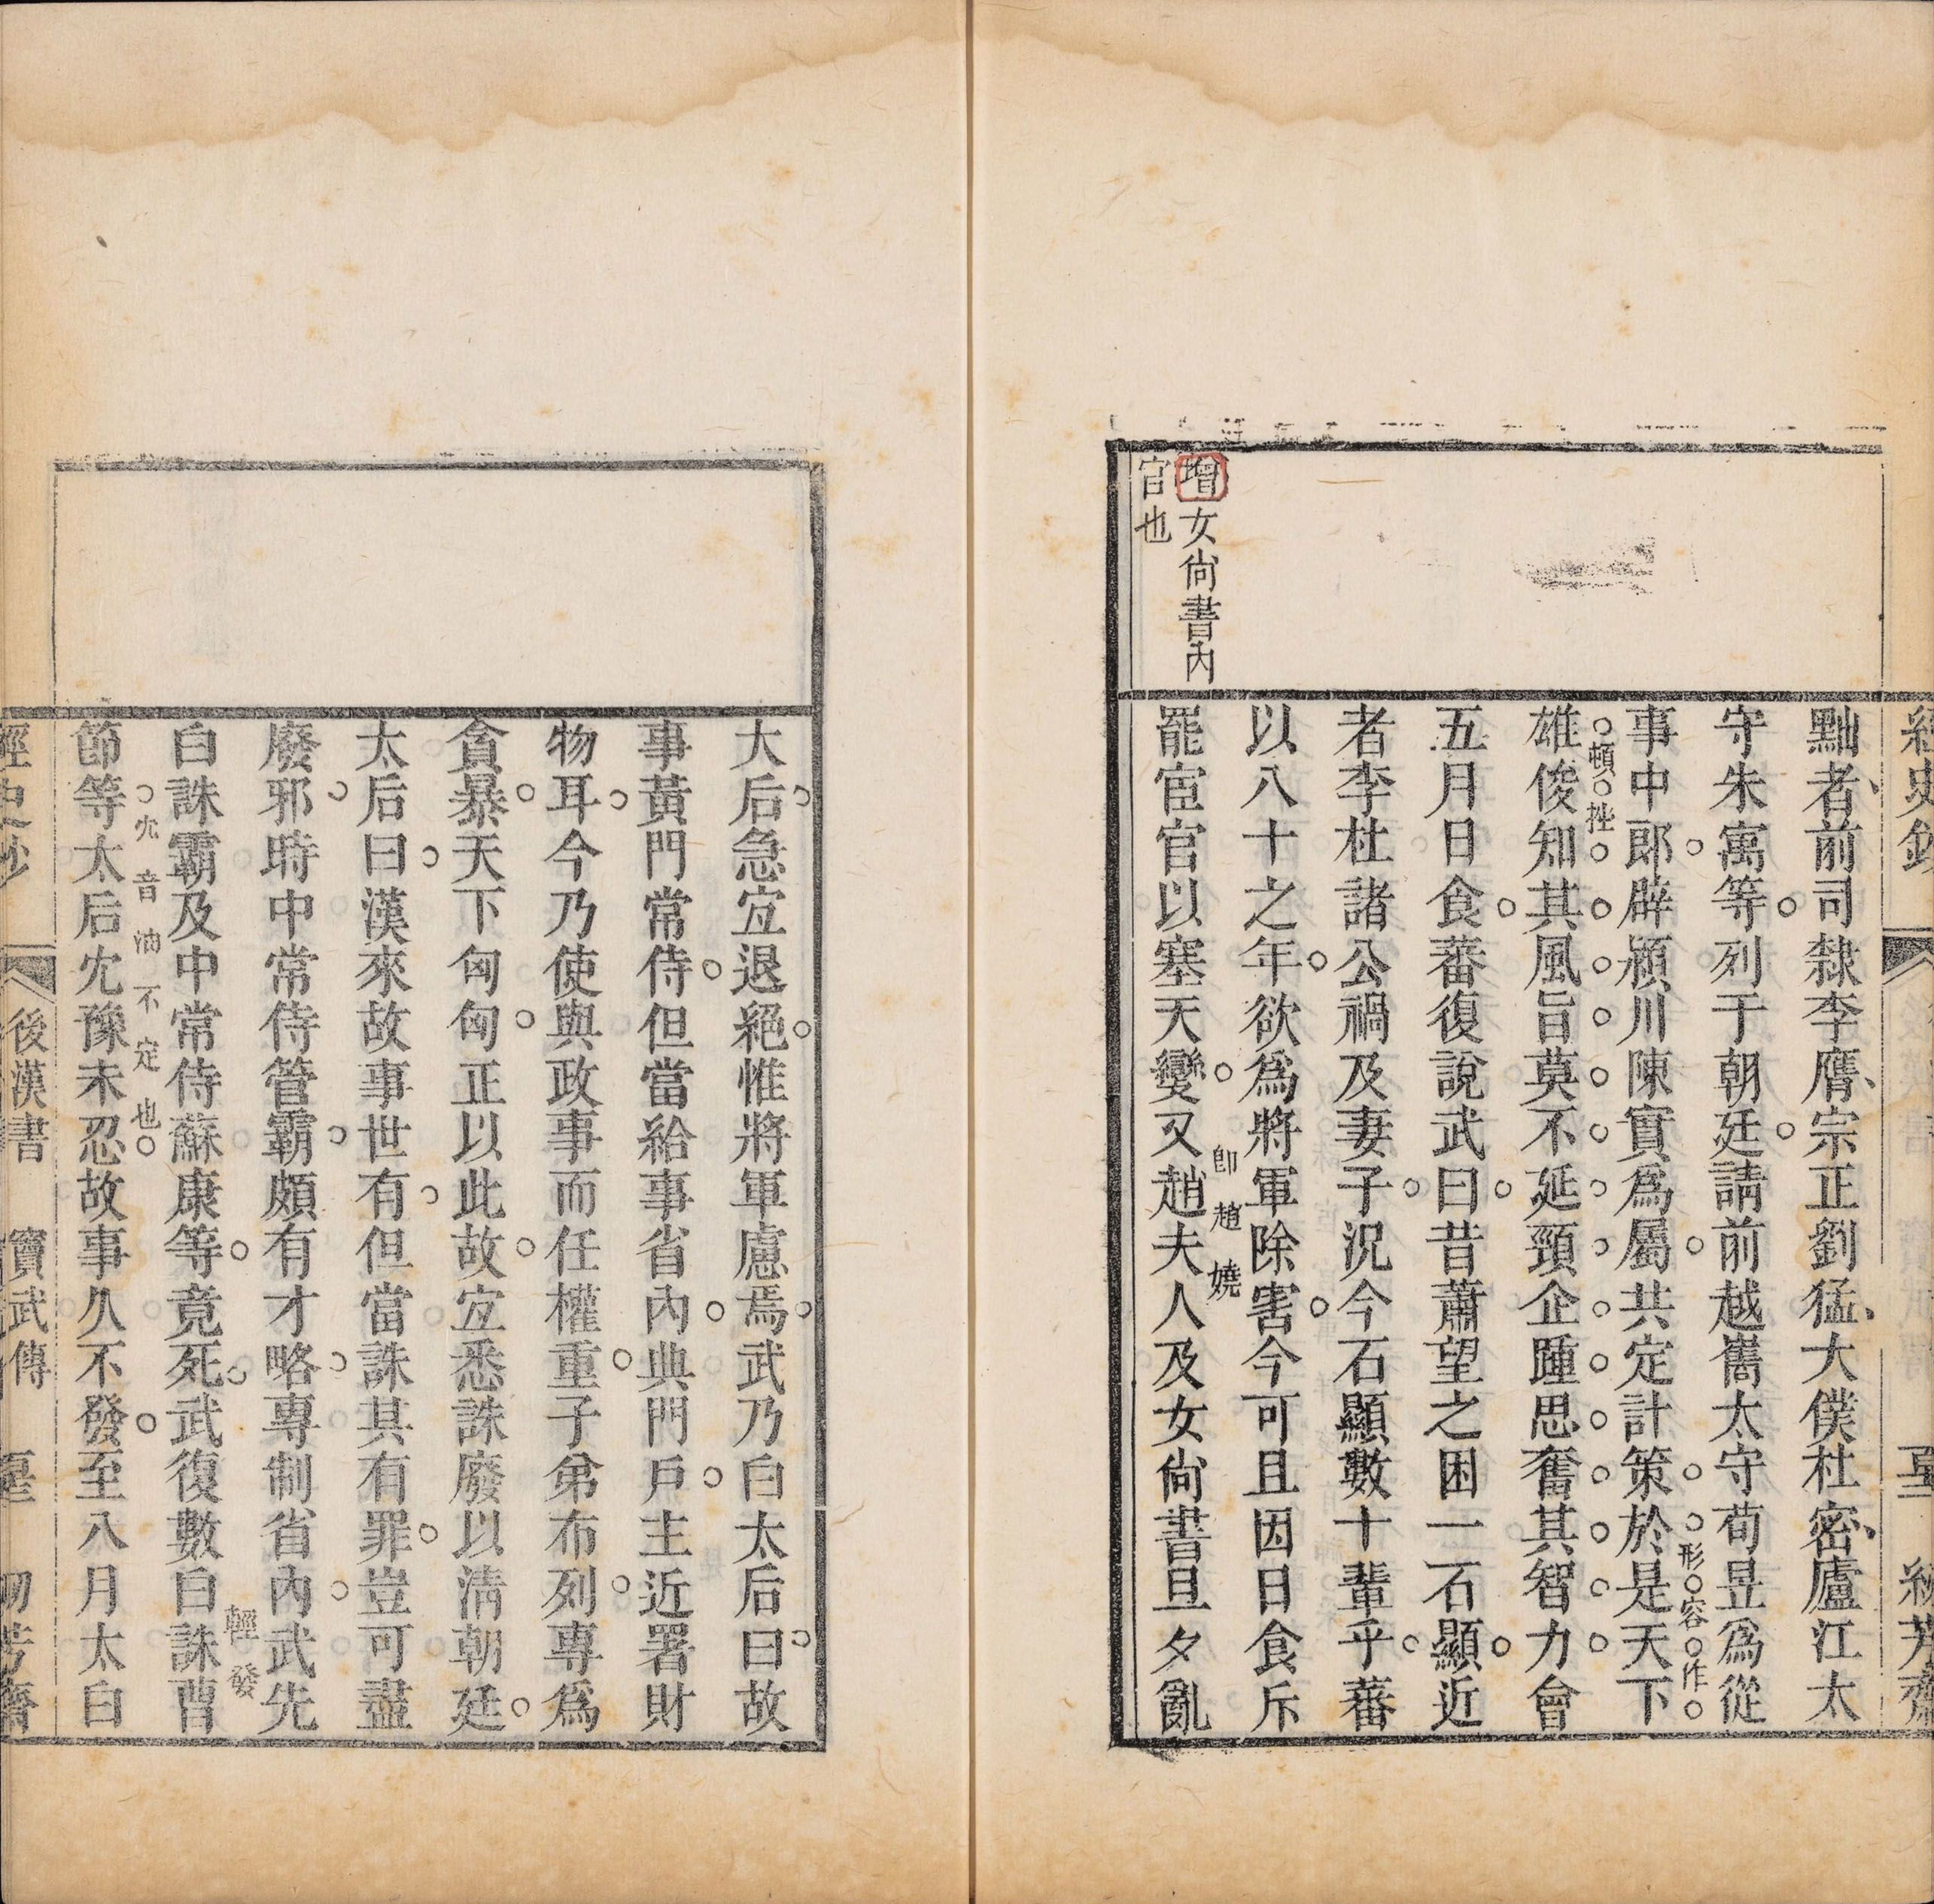 經史鈔
黜者前司隸李膺宗正劉猛大僕杜密廬江太
守朱寓等列于朝廷請前越嶲太守荀昱爲從
事中郎辟潁川陳實爲屬共定計策於是天下
形容作
雄俊知其風旨莫不延頸企踵思奮其智力會
頓挫
五月日食蕃復說武曰昔蕭望之困一石顯近
者李杜諸公禍及妻子況今石顯數十輩乎蕃
以八十之年欲爲將軍除害今可且因日食斥
罷宦官以塞天變又趙夫人及女尚書旦夕亂
卽趙嬈
增女尚書內
官也
大后急宜退絕惟將軍慮焉武乃白太后曰故
事黃門常侍但當給事省內典門戶主近署財
物耳今乃使與政事而任權重子弟布列專爲
貪暴天下匈匈正以此故宜悉誅廢以清朝廷
太后曰漢來故事世有但當誅其有罪豈可盡
廢邪時中常侍管霸頗有才略專制省內武先
白誅霸及中常侍蘇康等竟死武復數白誅曹
輕發
節等太后冘豫未忍故事久不發至八月太白
冘音油不定也
經史鈔 後漢書 竇武傳